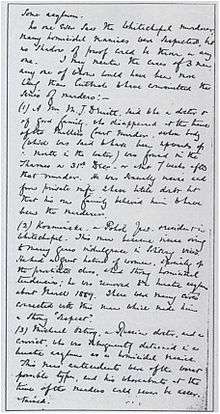 Some asylum.
No one ever saw the Whitechapel murderer,
many homicidal maniacs were suspected, but
no shadow of proof could be thrown on any
one. I may mention the cases of 3 men,
any one of whom would have been more
likely than Cutbush to have committed this
series of murders:-
(1) A Mr M. J. Druitt, said to be a doctor &
of good family, who disappeared at the time
of the Miller's Court murder, whose body
(which was said to have been upwards of
a month in the water) was found in the
Thames on 31st Decr. or about 7 weeks after
that murder. He was sexually insane and
from private infn I have little doubt but
that his own family believed him to have
been the murderer.
(2) Kosminski, a Polish Jew, & resident in
Whitechapel. This man became insane owing
to many years indulgence in solitary vices.
He had a great hatred of women, specially of
the prostitute class, & had strong homicidal
tendencies; he was removed to a lunatic asylum
about March 1889. There were many circs
connected with this man which made him
a strong "suspect".
(3) Michael Ostrog, a Russian doctor, and a
convict, who was subsequently detained in a
lunatic asylum as a homicidal maniac.
This man's antecedents were of the worst
possible type, and his whereabouts at the
time of the murders could never be ascer-
tained.